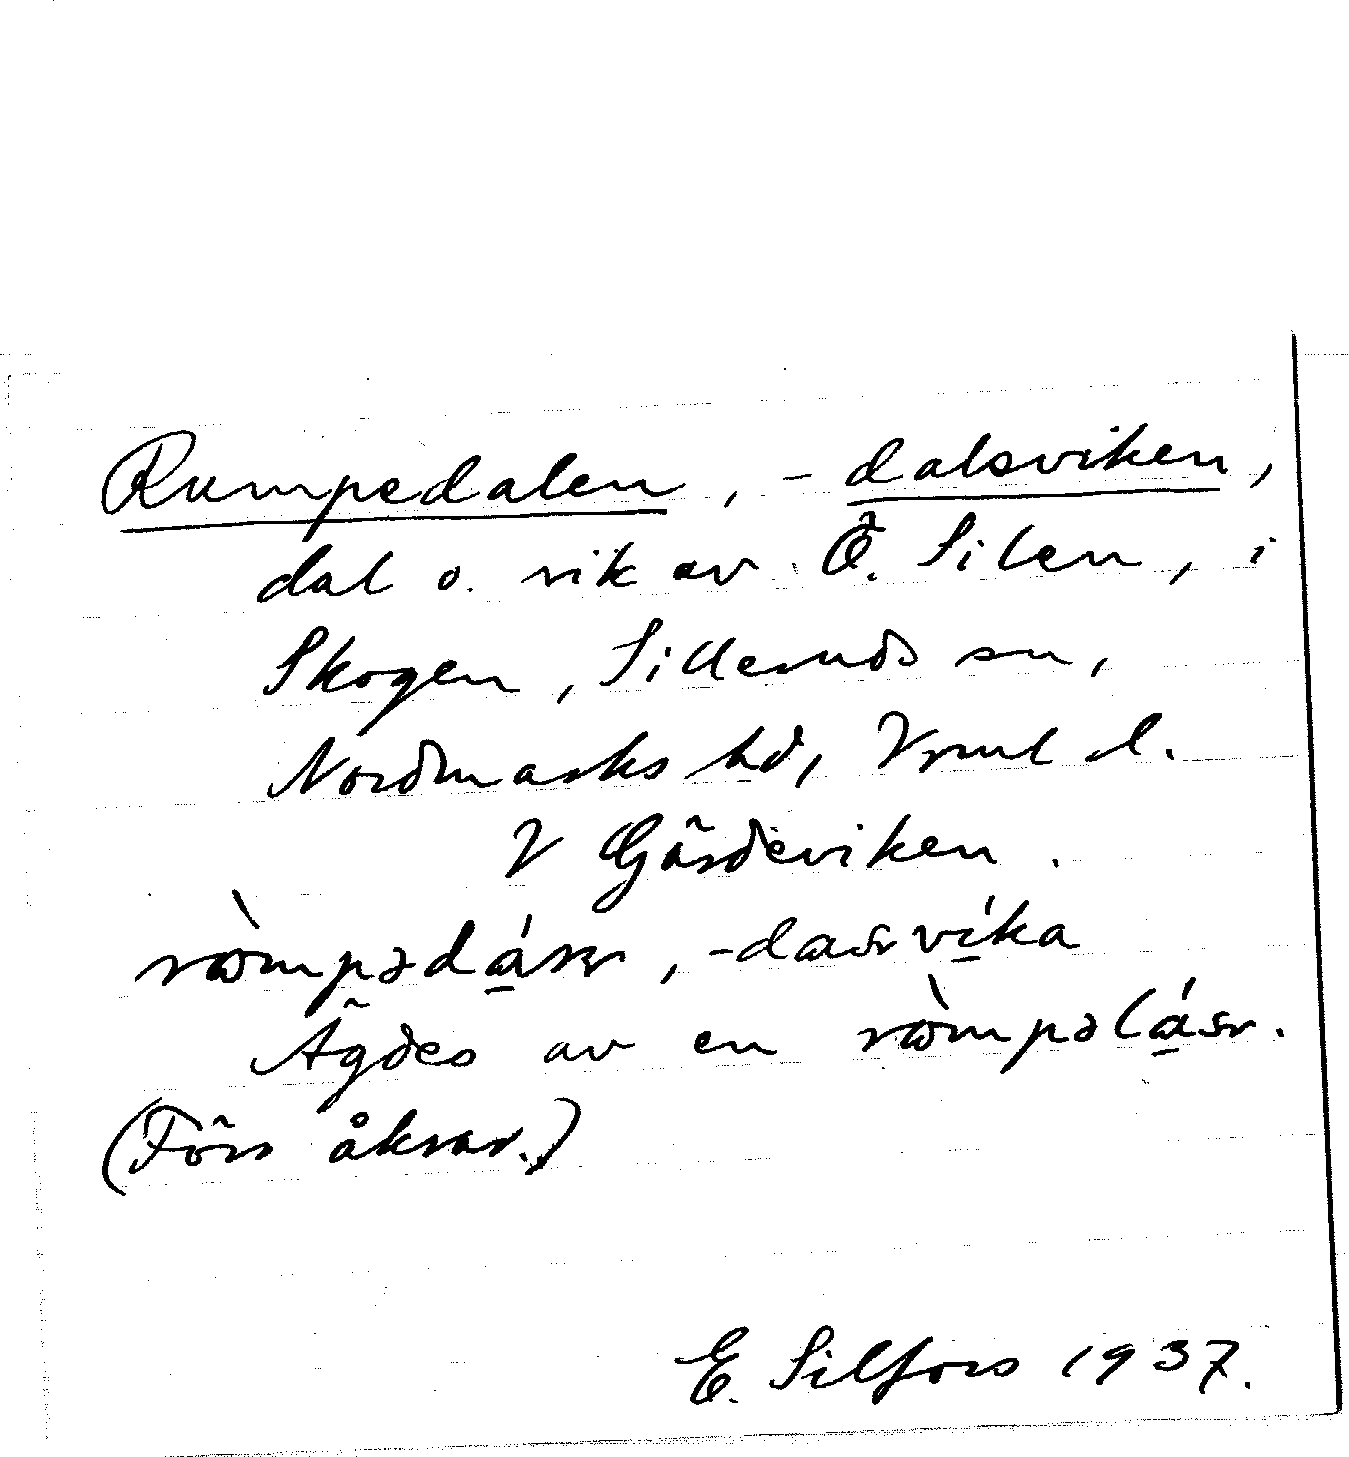 Rumpedalen, -dalsviken,
dal o. vik av Ö. Silen, i
Skogen, Silleruds sn,
Nordmarks hd, Vrml l.
V Gärdeviken.
, -dasvika
Ägdes av en
(Förr åkrar.)
E. Silfors 1937.